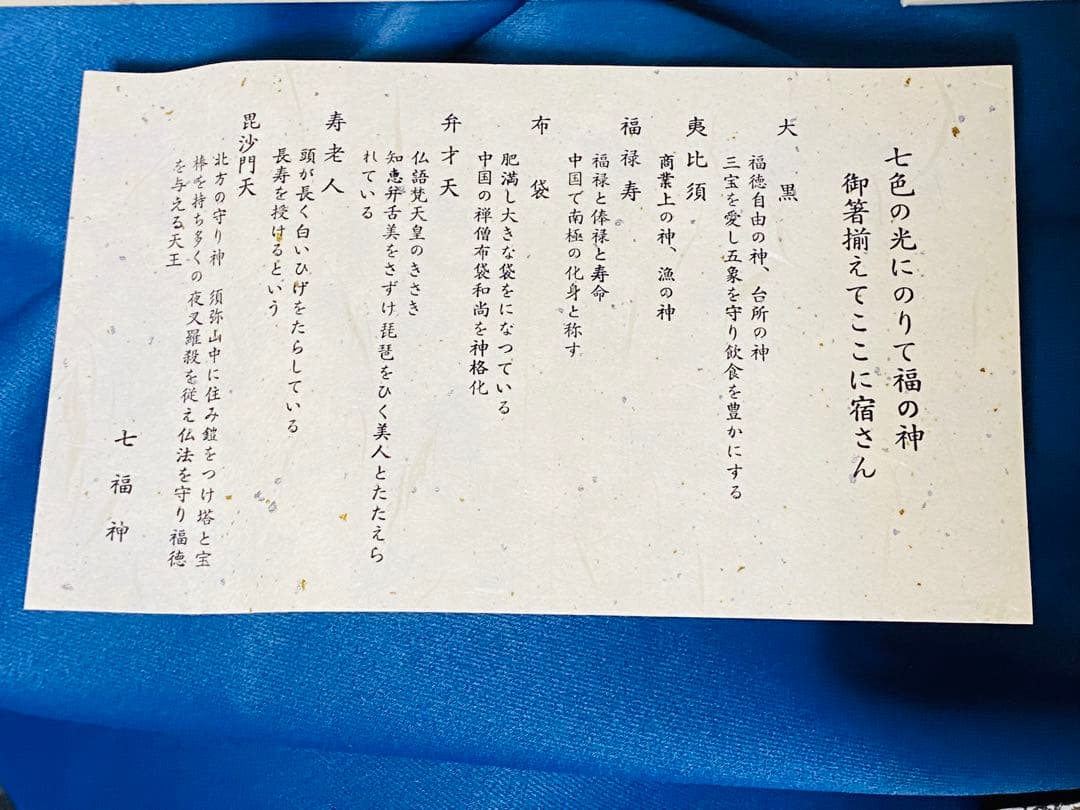 七色の光にのりて福の神
御箸揃えてここに宿さん
大黒
福徳自由の神、台所の神
三宝を愛し五象を守り飲食を豊かにする
夷比須
商業上の神、漁の神
福禄寿
福禄と俸禄と寿命
中国で南極の化身と称す
布袋
肥満し大きな袋をになつている
中国の禅僧布袋和尚を神格化
弁才天
仏語梵天皇のきさき
知恵弁舌美をさずけ琵琶をひく美人とたたえら
れている
寿老人
頭が長く白いひげをたらしている
長寿を授けるという
毘沙門天
北方の守り神 須弥山中に住み鎧をつけ塔と宝
棒を持ち多くの夜叉羅殺を従え仏法を守り福徳
を与える天王
七福神